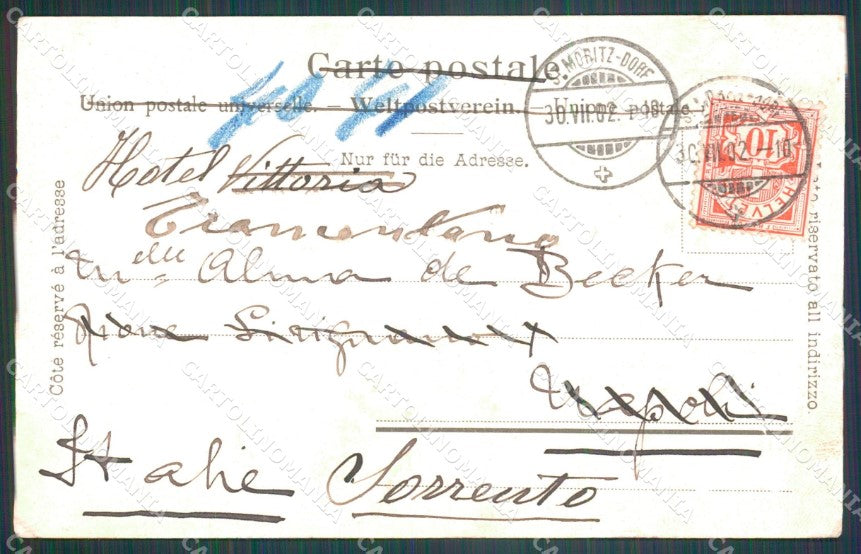 Carte postale
Union postale universelle. – Weltpostverein. – Unione postale
Nur für die Adresse.
Côté réservé à l'adresse
Lato riservato all indirizzo
S. MORITZ-DORF
30.VII.02.–10
30.VII.02.–10
10
HELVETIA
Hotel Vittoria
Tramontano
Mdlle Alma de Becker
Sirignano
Napoli
Italie Sorrento
CARTOLINOMANIA